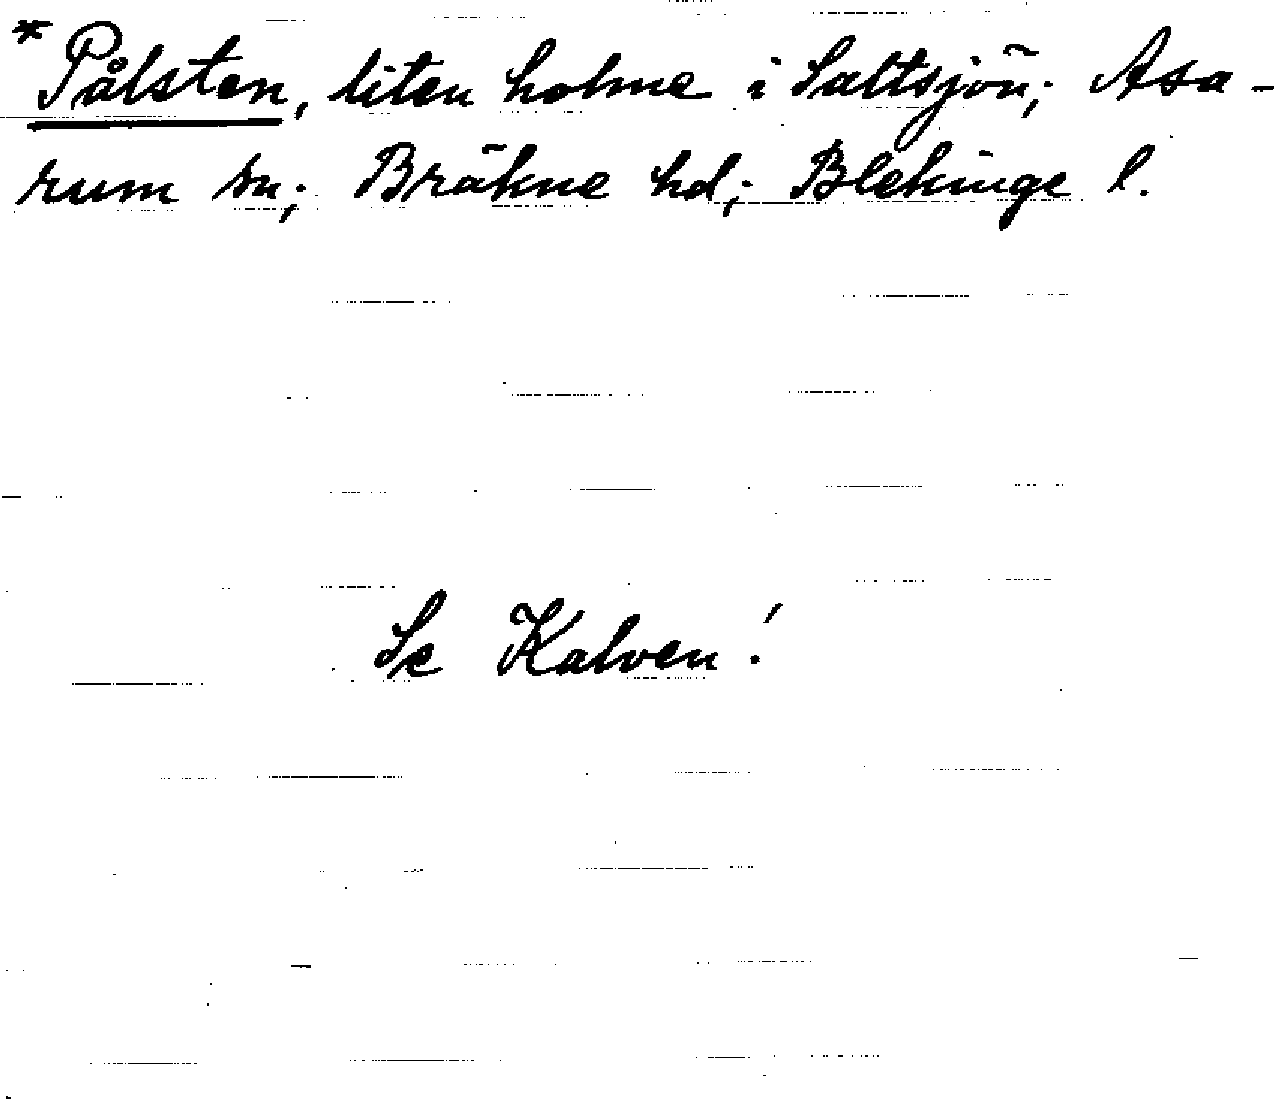 *Pålsten, liten holme i Saltsjön; Asa-
rum sn; Bräkne hd; Blekinge l.
Se Kalven!